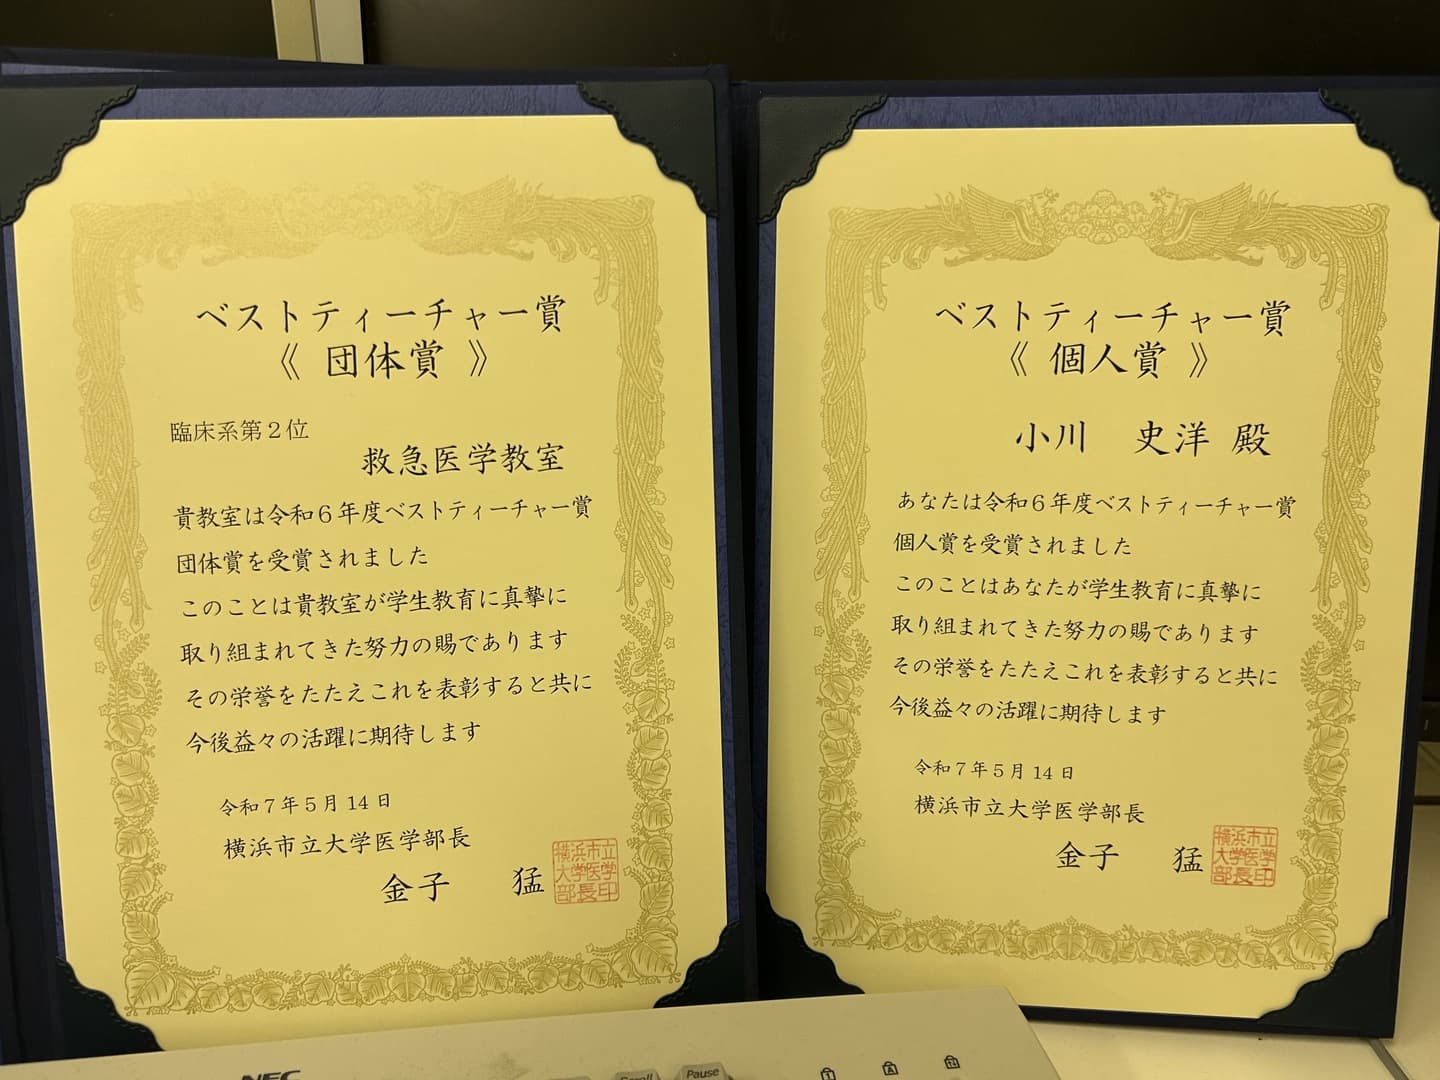 ベストティーチャー賞
《 団体賞 》
臨床系第２位
救急医学教室
貴教室は令和６年度ベストティーチャー賞
団体賞を受賞されました
このことは貴教室が学生教育に真摯に
取り組まれてきた努力の賜であります
その栄誉をたたえこれを表彰すると共に
今後益々の活躍に期待します
令和７年５月14日
横浜市立大学医学部長
金子 猛
横浜市立
大学医学
部長印
ベストティーチャー賞
《 個人賞 》
小川 史洋 殿
あなたは令和６年度ベストティーチャー賞
個人賞を受賞されました
このことはあなたが学生教育に真摯に
取り組まれてきた努力の賜であります
その栄誉をたたえこれを表彰すると共に
今後益々の活躍に期待します
令和７年５月14日
横浜市立大学医学部長
金子 猛
横浜市立
大学医学
部長印
NEC
Scroll
Pause
1
A